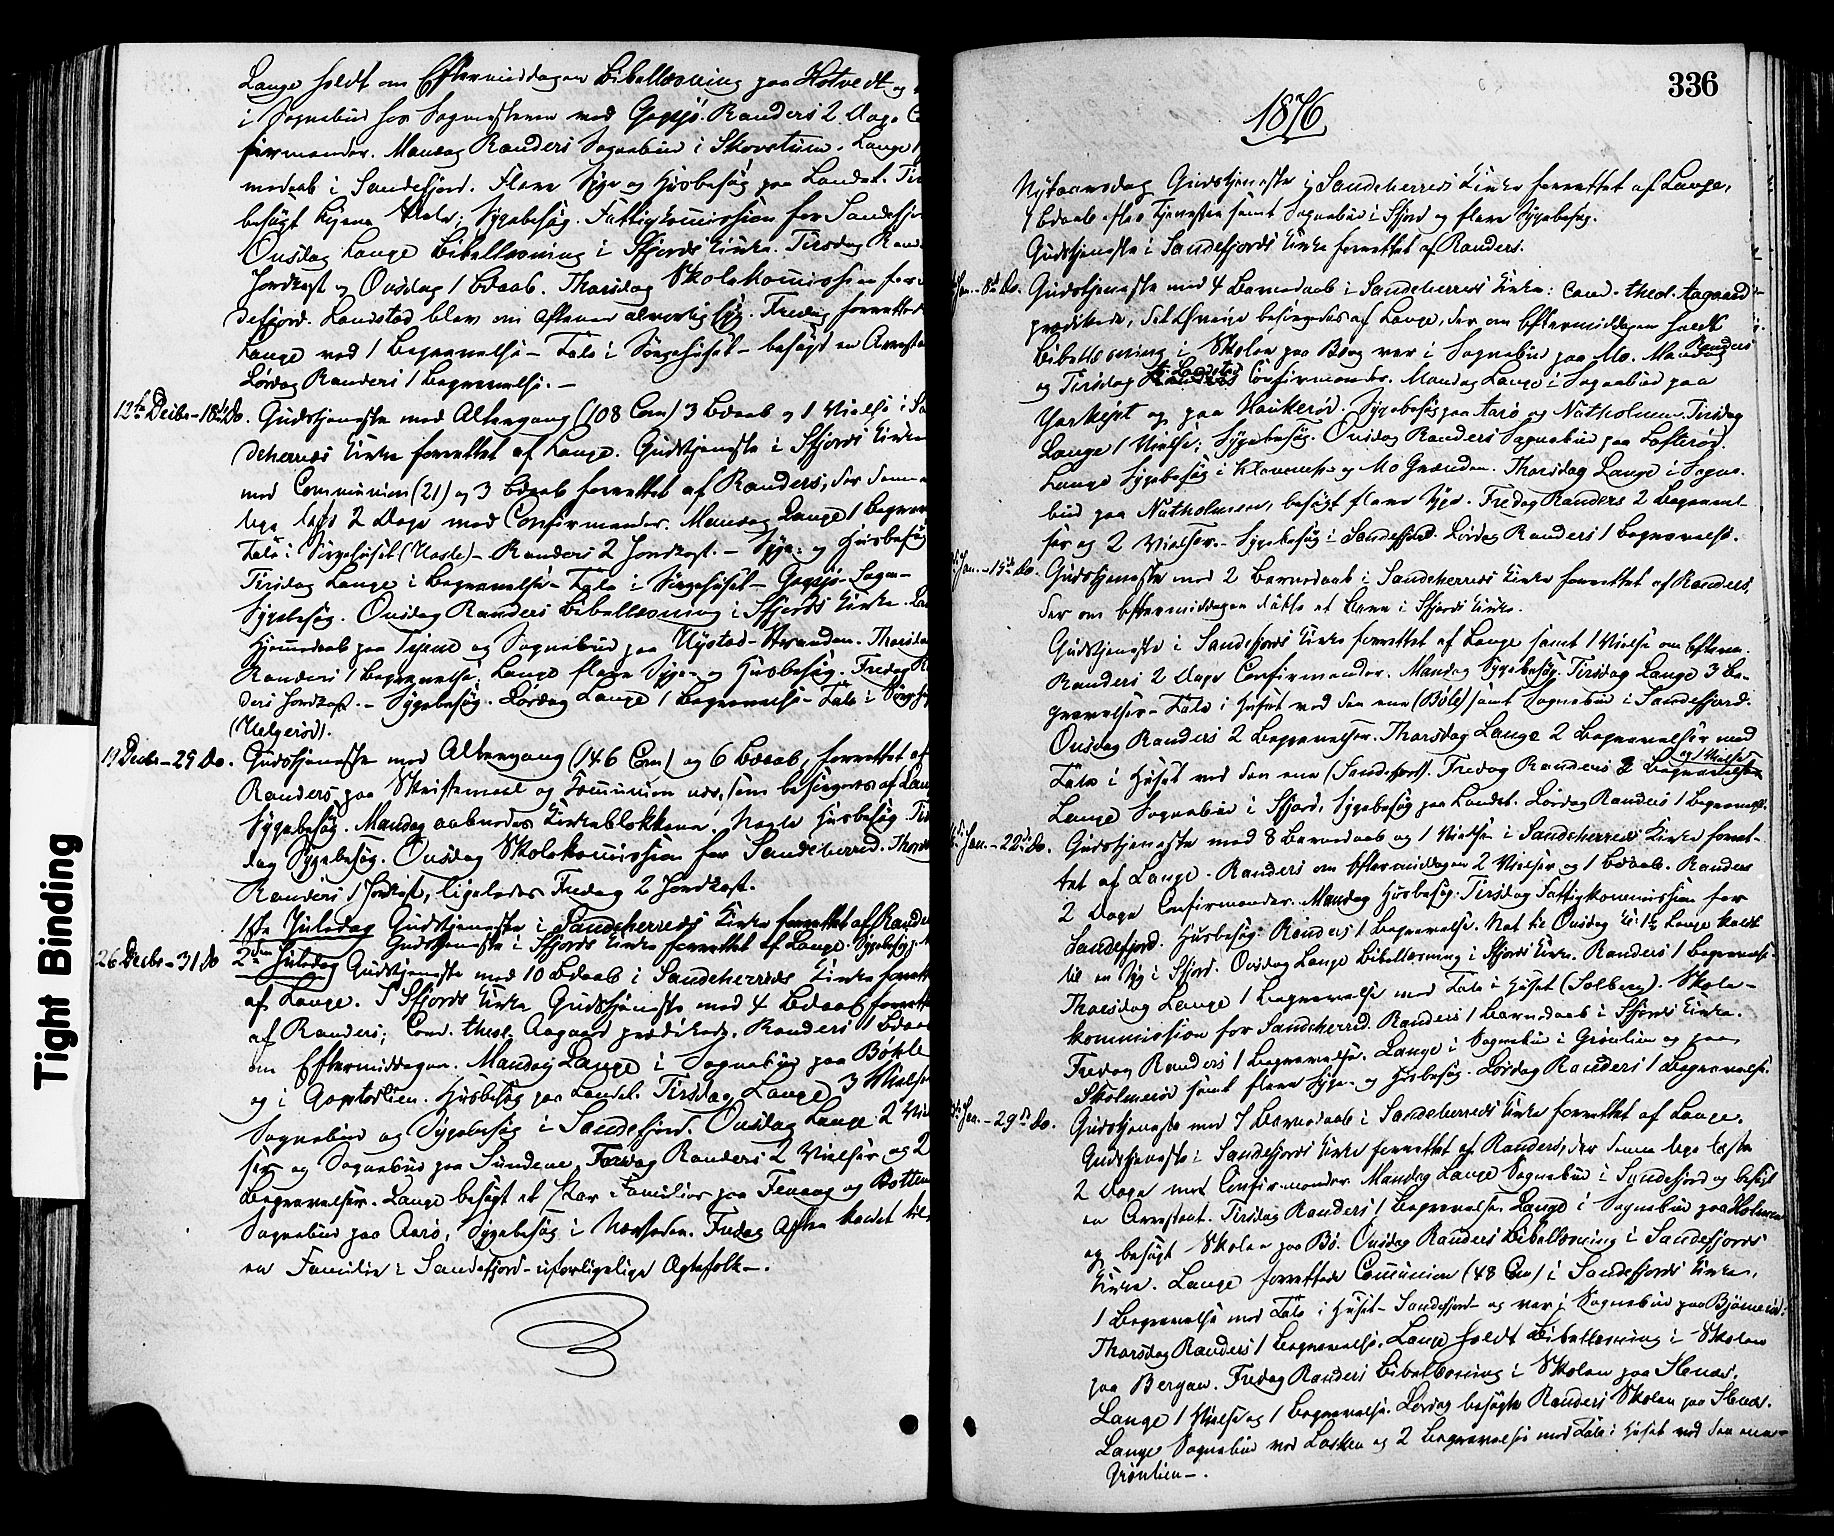 Lange holdt om Eftermiddagen Bibellæsning paa Hotvedt og
i Sognebud hos Sognesteren ved Gogsjø. Randers 2 Dage
firmander. Mandag Randers Sognebud i Skovstuen. Lange
medaab i Sandefjord. Flere Syge- og Husbesøg paa Landet.
besøgt Skole. Sygebesøg. Fattigkommission for Sandefjo
Onsdag Lange Bibellæsning i Sfjords Kirke. Tirsdag Rand
Jordkast og Onsdag 1 Bdaab. Thorsdag Skolekommission for
defjord. Landstad blev om Aftenen alvorlig syg. Fredag forrettede
Lange ved 1 Begravelse – Tale i Sørgehuset – besøgt en Arrestan
Lørdag Randers 1 Begravelse. –
12te Decbr – 18de Do. Gudstjeneste med Altergang (108 Com) 3 Bdaab og 1 Vielse i Sa
deherreds Kirke forrettet af Lange. Gudstjeneste i Sfjords Kirke
med Communion (21) og 3 Bdaab forrettet af Randers, der
læste 2 Dage med Confirmander. Mandag Lange 1 Begrav
Tale i Sørgehuset (Nasle) – Randers 2 Jordkast. – Syge- og Husbesøg
Tirsdag Lange i Begravelse – Tale i Sørgehuset – Gogsjø – Sogn –
Sygebesøg. Onsdag Randers Bibellæsning i Sfjords Kirke.
Hjemmedaab paa og Sognebud paa Nystad – Stranden. Thorsdag
Randers 1 Begravelse. Lange flere Syge- og Husbesøg. Fredag R
ders Jordkast. – Sygebesøg. Lørdag Lange 1 Begravelse – Tale i Sørgehu
(Helgerød).
19 Decbr – 25 Do. Gudstjeneste med Altergang (146 Com) og 6 Bdaab, forrettet af
Randers paa Skriftemaal og Communion nær, som besørgedes af Lan
Sygebesøg. Mandag aabnedes Kirkeblokkene. Husbesøg Tirs
dag Sygebesøg. Onsdag Skolekommission for Sandeherred. Thorsd
Randers 1 Jordkast, ligeledes Fredag 2 Jordkast.
1ste Juledag Gudstjeneste i Sandeherreds Kirke forrettet af Rander
Gudstjeneste i Sfjords Kirke forrettet af Lange. Sygebesøg.
26 Decbr – 31 Do 2den Juledag Gudstjeneste med 10 Bdaab i Sandeherreds Kirke forrett
af Lange. I Sfjords Kirke Gudstjeneste med 4 Bdaab forrette
af Randers; Cand. theol. Aagaard prædikede. Randers 1 Bdaab
om Eftermiddagen. Mandag Lange i Sognebud paa Bøhle
og i Gogstadlien. Husbesøg paa Landet. Tirsdag Lange 3 Vielser
Sognebud og Sygebesøg i Sandefjord. Onsdag Lange 2 Viel
ser og Sognebud paa Sundene. Torsdag Randers 2 Vielser og 2
Begravelser. Lange besøgt et Par Familier paa Fevang og
Sognebud paa Aarø, Sygebesøg i Fredag Aften kaldet til
en Familie i Sandefjord – uforligelige Ægtefolk –.
336
1876
Nytaarsdag Gudstjeneste i Sandeherreds Kirke forrettet af Lange,
1 Bdaab efter Tjenesten samt Sognebud i Sfjord og flere Sygebesøg.
Gudstjeneste i Sandefjords Kirke forrettet af Randers.
Jan. – 8de Do. Gudstjeneste med 4 Barnedaab i Sandeherreds Kirke: Cand. theol. Aagaard
prædikede, det Øvrige besørgedes af Lange, der om Eftermiddagen holdt
Bibellæsning i Skolen paa Berg var i Sognebud paa Mo. Mandag Randers
og Tirsdag Landstad Confirmander. Mandag Lange i Sognebud paa
og paa Haukerød. Sygebesøg paa Aarø og Natholmen. Tirsdag
Lange 1 Vielse; Sygebesøg. Onsdag Randers Sognebud paa Lofterød.
Lange Sygebesøg i og Mo Grænden. Thorsdag Lange i Sogne-
bud paa Natholmen, besøgt flere Syge. Fredag Randers 2 Begravel-
ser og 2 Vielser. – Sygebesøg i Sandefjord. Lørdag Randers 1 Begravelse.
Jan. – 15de Do. Gudstjeneste med 2 Barnedaab i Sandeherreds Kirke forrettet af Randers,
der om Eftermiddagen døbte et Barn i Sfjords Kirke.
Gudstjeneste i Sandefjords Kirke forrettet af Lange samt 1 Vielse om Efterm.
Randers 2 Dage Confirmander. Mandag Sygebesøg. Tirsdag Lange 3 Be-
gravelser – Tale i Huset ved den ene (Bøle) samt Sognebud i Sandefjord.
Onsdag Randers 2 Begravelser. Thorsdag Lange 2 Begravelser med
Tale i Huset ved den ene (Sandefjord). Fredag Randers 2 Begravelser og 1 Vielse
Lange Sognebud i Sfjord, Sygebesøg paa Landet. Lørdag Randers 1 Begravelse.
Jan. – 22de Do. Gudstjeneste med 8 Barnedaab og 1 Vielse i Sandeherreds Kirke forret-
tet af Lange. Randers om Eftermiddagen 2 Vielser og 1 Bdaab. Randers
2 Dage Confirmander. Mandag Husbesøg. Tirsdag Fattigkommission for
Sandefjord. Husbesøg. Randers 1 Begravelse. Nat til Onsdag Kl. 1½ Lange kaldt
til en Syg i Sfjord. Onsdag Lange Bibellæsning i Sfjords Kirke. Randers 1 Begravelse.
Thorsdag Lange 1 Begravelse med Tale i Huset (Solberg). Skole-
kommission for Sandeherred. Randers 1 Barnedaab i Sfjords Kirke.
Fredag Randers 1 Begravelse. Lange i Sognebud i Grønlien og paa
samt flere Syge- og Husbesøg. Lørdag Randers 1 Begravelse.
Jan. – 29de Do. Gudstjeneste med 7 Barnedaab i Sandeherreds Kirke forrettet af Lange.
Gudstjeneste i Sandefjords Kirke forrettet af Randers, der læste
2 Dage med Confirmander. Mandag Lange Sognebud i Sandefjord og besøgt
en Arrestant. Tirsdag Randers 1 Begravelse. Lange i Sognebud paa Holmen
og besøgt Skolen paa Bø. Onsdag Randers Bibellæsning i Sandefjords
Kirke. Lange forrettede Communion (48 Com) i Sandefjords Kirke,
1 Begravelse med Tale i Huset – Sandefjord – og var i Sognebud paa Bjømerød.
Thorsdag Randers 1 Begravelse. Lange holdt Bibellæsning i Skolen
paa Bergan. Fredag Randers Bibellæsning i Skolen paa
Lange 1 Vielse og 1 Begravelse. Lørdag besøgte Randers Skolen paa
Lange Sognebud ved og 2 Begravelser med Tale i Huset ved den ene –
Grønlien –.
Tight Binding